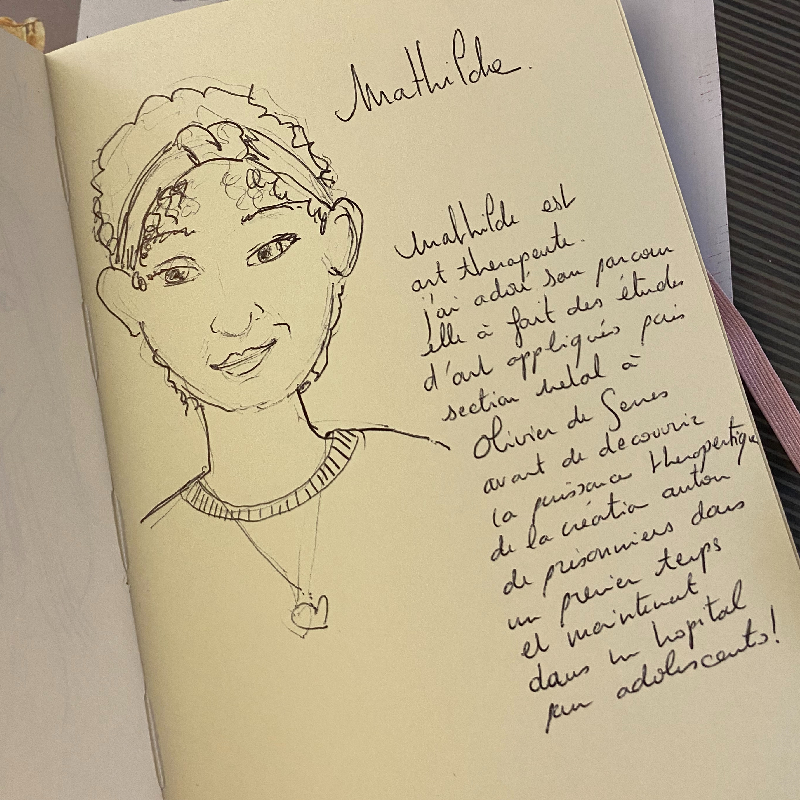 Mathilde.
Mathilde est
art therapeute.
j'ai adoré son parcours
elle à fait des études
d'art appliqués puis
section métal à
Olivier de Serres
avant de decouvrir
la puissance therapeutique
de la création autour
de prisonniers dans
un premier temps
et maintenant
dans un hopital
pour adolescents!